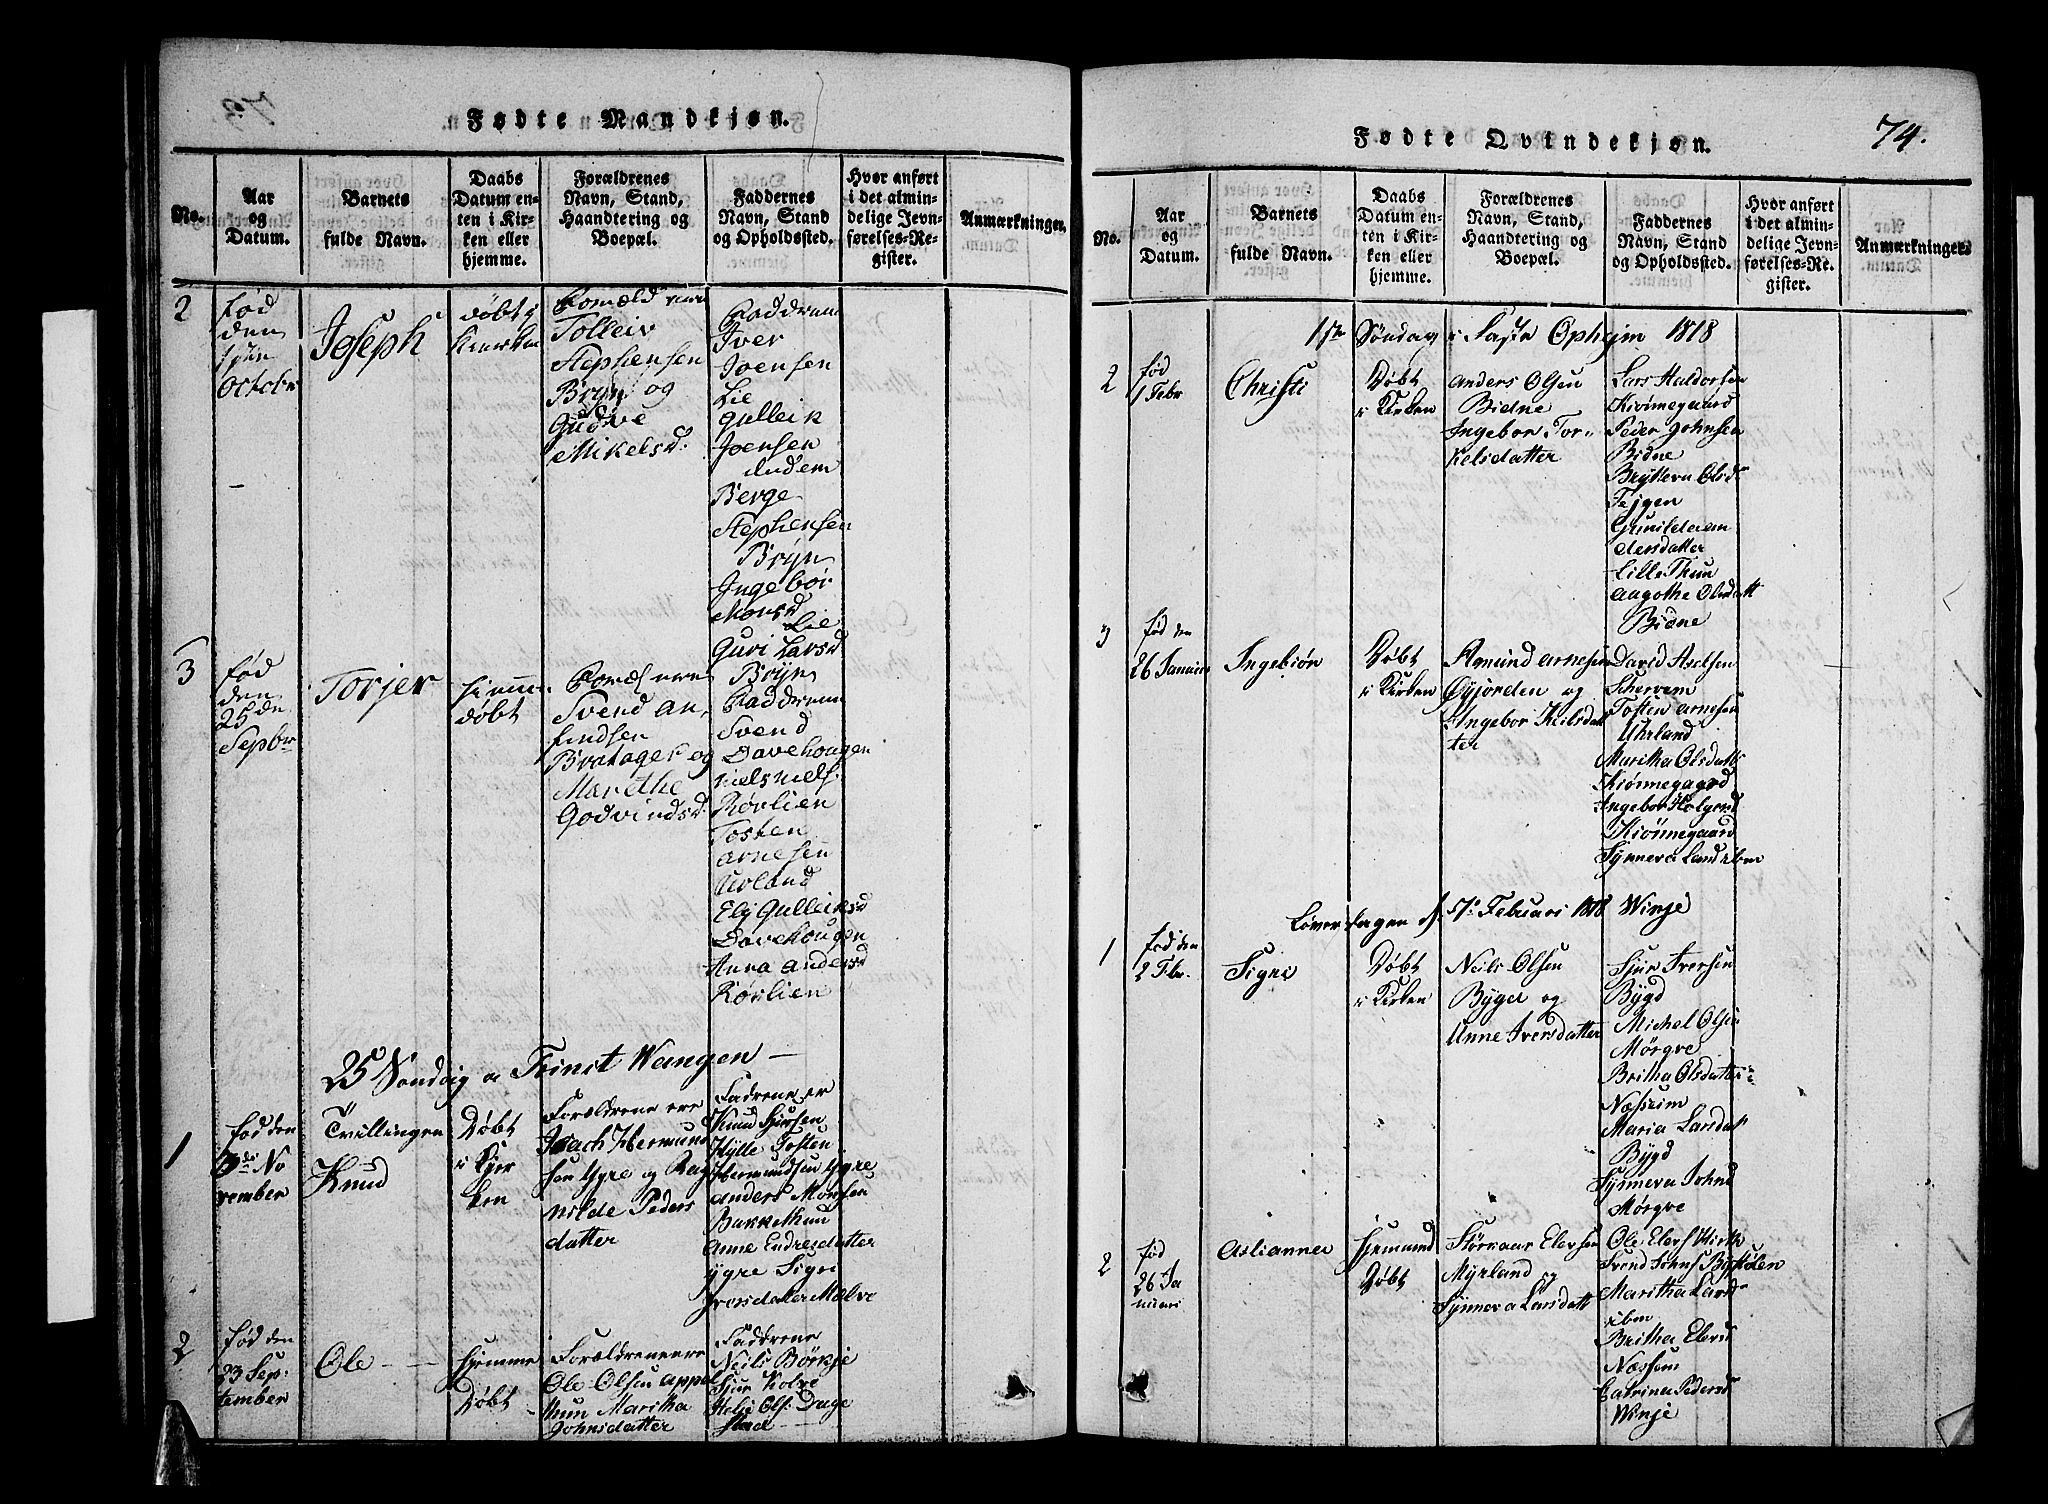 Fødte Mandkjøn.
No.
Aar
og
Datum.
Barnets
fulde Navn.
Daabs
Datum en-
ten i Kir-
ken eller
hjemme.
Forældrenes
Navn, Stand,
Haandtering og
Boepæl.
Faddernes
Navn, Stand
og Opholdssted.
Hvor anført
i det almin-
delige Jevn-
førelses-Re-
gister.
Anmærkninger.
2
fød
den
October
Joseph
døbt
Tolleiv
Stephensen
Bryn og
Gudve
Mikelsd.
Iver
Joensen
Lie
Gulleik
Joensen
Berge
Stephensen
Bryn
Ingebør
Monsd
Lie
Guri Larsd
Bryn
3
fød
den
25de
Septbr
Torjer
døbt
Svend An-
findsen
Bratager og
Marethe
Godvindsd.
Svend
Davehougen
Niels Niels.
Rørlien
Tosten
Arnesen
Urland
Ely Gulleiksd
Davehougen
Anna Andersd
Rørlien
25 Søndag a Trinit Wangen
1
fød den
3die No
vember
Tvillingen
Knud
Døbt
i Kyr
ken
Forældrene ere
Hermund
sen Ygre og Rag
nilde Peders
datter
Fadrene er
Knud Sjursen
Hylle Tosten
Hermundsen Ygre
Anders Monsen
Bakkethun
Anne Endresdatter
Ygre Signe
Iversdatter Mølve
2
fød den
23 Sep-
tember
Ole
Hjemme
Døbt
Forældrene ere
Ole Olsen Appel
thun Maritha
Johnsdatter
Faddrene
Neils Børkje
Sjur Kolve
Helje Ols. Dage
stad
Fødte Qvindekjøn.
74.
No.
Aar
og
Datum.
Barnets
fulde Navn.
Daabs
Datum en-
ten i Kir-
ken eller
hjemme.
Forældrenes
Navn, Stand,
Haandtering og
Boepæl.
Faddernes
Navn, Stand
og Opholdssted.
Hvor anført
i det almin-
delige Jevn-
førelses-Re-
gister.
Anmærkninger.
1ste Søndag i Faste Ophejm 1818
2
fød
1 Febr
Christi
Døbt
i Kirken
Anders Olsen
Bidne
Ingebor Tor-
kelsdatter
Lars Haldorsen
Kiønnegaard
Peder Johnsen
Bidne
Brytteva Olsd
Tejgen
Gunilde An
dersdatter
Lille Thun
Aagothe Olsdatt
Bidne
3
fød den
26 Januari
Ingebiør
Døbt
i Kirken
Amund Arnesen
Øyjorden og
Ingebor Nielsdat
ter
David Axelsen
Schervem
Tosten Arnesen
Uhrland
Maritha Olsdatt
Kiønnegaard
Ingebor Holgersd
Kiønnegaard
Synneva Land ibm
Løverdagen d. 7de Februari 1818 Winje
1
fød den
2 Febr.
Signe
Døbt
i Kirken
Neils Olsen
Byger og
Anne Iversdatter
Sjur Iversen
Bygd
Michel Olsen
Mørgve
Britha Olsdatter
Næsheim
Maria Larsdatt
Bygd
Synneva Johnd
Mørgve
2
fød
26 Ja
nuari
Aslianna
Hjemme
Døbt
Størkaar Elersen
Myrland og
Synneva Larsdatt
Ole Elers Wirth
Svend Johns Bystølen
Maritha Larsd
ibm
Britha Elersd
Næshem
Catrina Pedersd
Winje